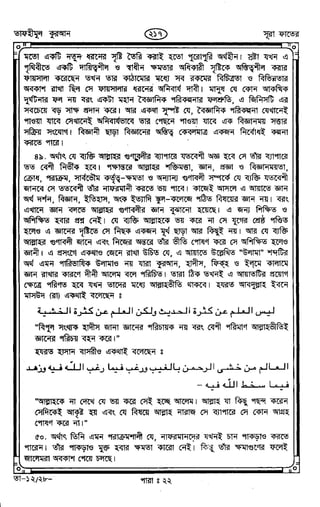 তাফহীমুল কুরআন
২১৭
সূরা ফাতের
মতো একটি নতুন ধরনের সৃষ্টি তৈরি করাই হতো পুরোপুরি অর্থহীন। স্রষ্টা যখন এ
পৃথিবীতে একটি দায়িত্বশীল ও স্বাধীন ক্ষমতার অধিকারী সৃষ্টিকে অস্তিত্বশীল করার
ফায়সালা করেছেন তখন তার কাঠামোর মধ্যে সব রকমের বিচিত্রতা ও বিভিন্নতার
অবকাশ রাখা ছিল সে ফায়সালার ধরনের অনিবার্য দাবী। মানুষ যে কোন আকস্মিক
দুর্ঘটনার ফল নয় বরং একটা মহান বৈজ্ঞানিক পরিকল্পনার ফলশ্রুতি, এ জিনিসটি এর
সবচেয়ে বড় সাক্ষ্য প্রদান করে। আর একথা সুস্পষ্ট যে, বৈজ্ঞানিক পরিকল্পনা যেখানেই
পাওয়া যাবে সেখানেই অনিবার্যভাবে তার পেছনে পাওয়া যাবে এক বিজ্ঞানময় সত্তার
সক্রিয় সংযোগ। বিজ্ঞানী ছাড়া বিজ্ঞানের অস্তিত্ব কেবলমাত্র একজন নির্বোধই কল্পনা
করতে পারে।
৪৯. অর্থাৎ যে ব্যক্তি আল্লাহর গুণাবলীর ব্যাপারে যতবেশী অজ্ঞ হবে সে তাঁর ব্যাপারে
তত বেশী নির্ভীক হবে। পক্ষান্তরে আল্লাহর শক্তিমত্তা, জ্ঞান, প্রজ্ঞা ও বিজ্ঞানময়তা,
ক্রোধ, পরাক্রম, সার্বভৌম কর্তৃত্ব-ক্ষমতা ও অন্যান্য গুণাবলী সম্পর্কে যে ব্যক্তি যতবেশী
জানবে সে ততবেশী তাঁর নাফরমানী করতে ভয় পাবে। কাজেই আসলে এ আয়াতে জ্ঞান
অর্থ দর্শন, বিজ্ঞান, ইতিহাস, অংক ইত্যাদি স্কুল-কলেজে পঠিত বিষয়ের জ্ঞান নয়। বরং
এখানে জ্ঞান বলতে আল্লাহর গুণাবলীর জ্ঞান বুঝানো হয়েছে। এ জন্য শিক্ষিত ও
অশিক্ষিত হবার প্রশ্ন নেই। যে ব্যক্তি আল্লাহকে ভয় করে না সে যুগের শ্রেষ্ঠ পণ্ডিত
হলেও এ জ্ঞানের দৃষ্টিতে সে নিছক একজন মূর্খ ছাড়া আর কিছুই নয়। আর যে ব্যক্তি
আল্লাহর গুণাবলী জানে এবং নিজের অন্তরে তাঁর ভীতি পোষণ করে সে অশিক্ষিত হলেও
জ্ঞানী। এ প্রসংগে একথাও জেনে রাখা উচিত যে, এ আয়াতে উল্লেখিত "উলামা" শব্দটির
অর্থ এমন পারিভাষিক উলামাও নয় যারা কুরআন, হাদীস, ফিক্‌হ ও ইল্‌মে কালামে
জ্ঞান রাখার কারণে দীনী আলেম বলে পরিচিত। তারা ঠিক তখনই এ আয়াতটির প্রয়োগ
ক্ষেত্রে পরিণত হবে যখন তাদের মধ্যে আল্লাহভীতি থাকবে। হযরত আবদুল্লাহ ইবনে
মাসউদ (রা) একথাই বলেছেন ঃ
ليس العلم عن كثرة الحديث ولكن العلم عن كثرة الخشية
"বিপুল সংখ্যক হাদীস জানা জ্ঞানের পরিচায়ক নয় বরং বেশী পরিমাণ আল্লাহভীতিই
জ্ঞানের পরিচয় বহন করে।"
হযরত হাসান বাসরীও একথাই বলেছেন ঃ
العالم من خشى الرحمن بالغيب ورغب فيما رغب الله فيه وزهد
فيما سخط الله فيه -
"আল্লাহকে না দেখে যে ভয় করে সেই হচ্ছে আলেম। আল্লাহ যা কিছু পছন্দ করেন
সেদিকেই আকৃষ্ট হয় এবং যে বিষয়ে আল্লাহ নারাজ সে ব্যাপারে সে কোন আগ্রহ
পোষণ করে না।"
৫০. অর্থাৎ তিনি এমন পরাক্রমশালী যে, নাফরমানদের যখনই চান পাকড়াও করতে
পারেন। তাঁর পাকড়াও মুক্ত হবার ক্ষমতা কারো নেই। কিন্তু তাঁর ক্ষমাগুণের ফলেই
জালেমরা অবকাশ পেয়ে চলছে।
তা-১২/২৮-
পারা ঃ ২২